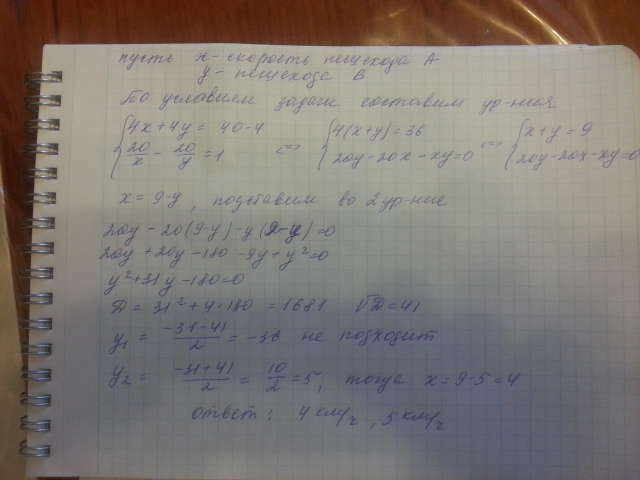 пусть x - скорость пешехода A
y - пешехода B
По условиям задачи составим ур-ния
{4x+4y = 40-4 <=> {4(x+y)=36 <=> {x+y=9
{20/x - 20/y = 1 {20y-20x-xy=0 {20y-20x-xy=0
x = 9-y, подставим во 2 ур-ние
20y - 20(9-y) - y(9-y)=0
20y + 20y - 180 - 9y + y²=0
y²+31y-180=0
D = 31² + 4·180 = 1681 √D=41
y₁ = (-31-41)/2 = -36 не подходит
y₂ = (-31+41)/2 = 10/2 = 5, тогда x=9-5=4
ответ: 4 км/ч, 5 км/ч